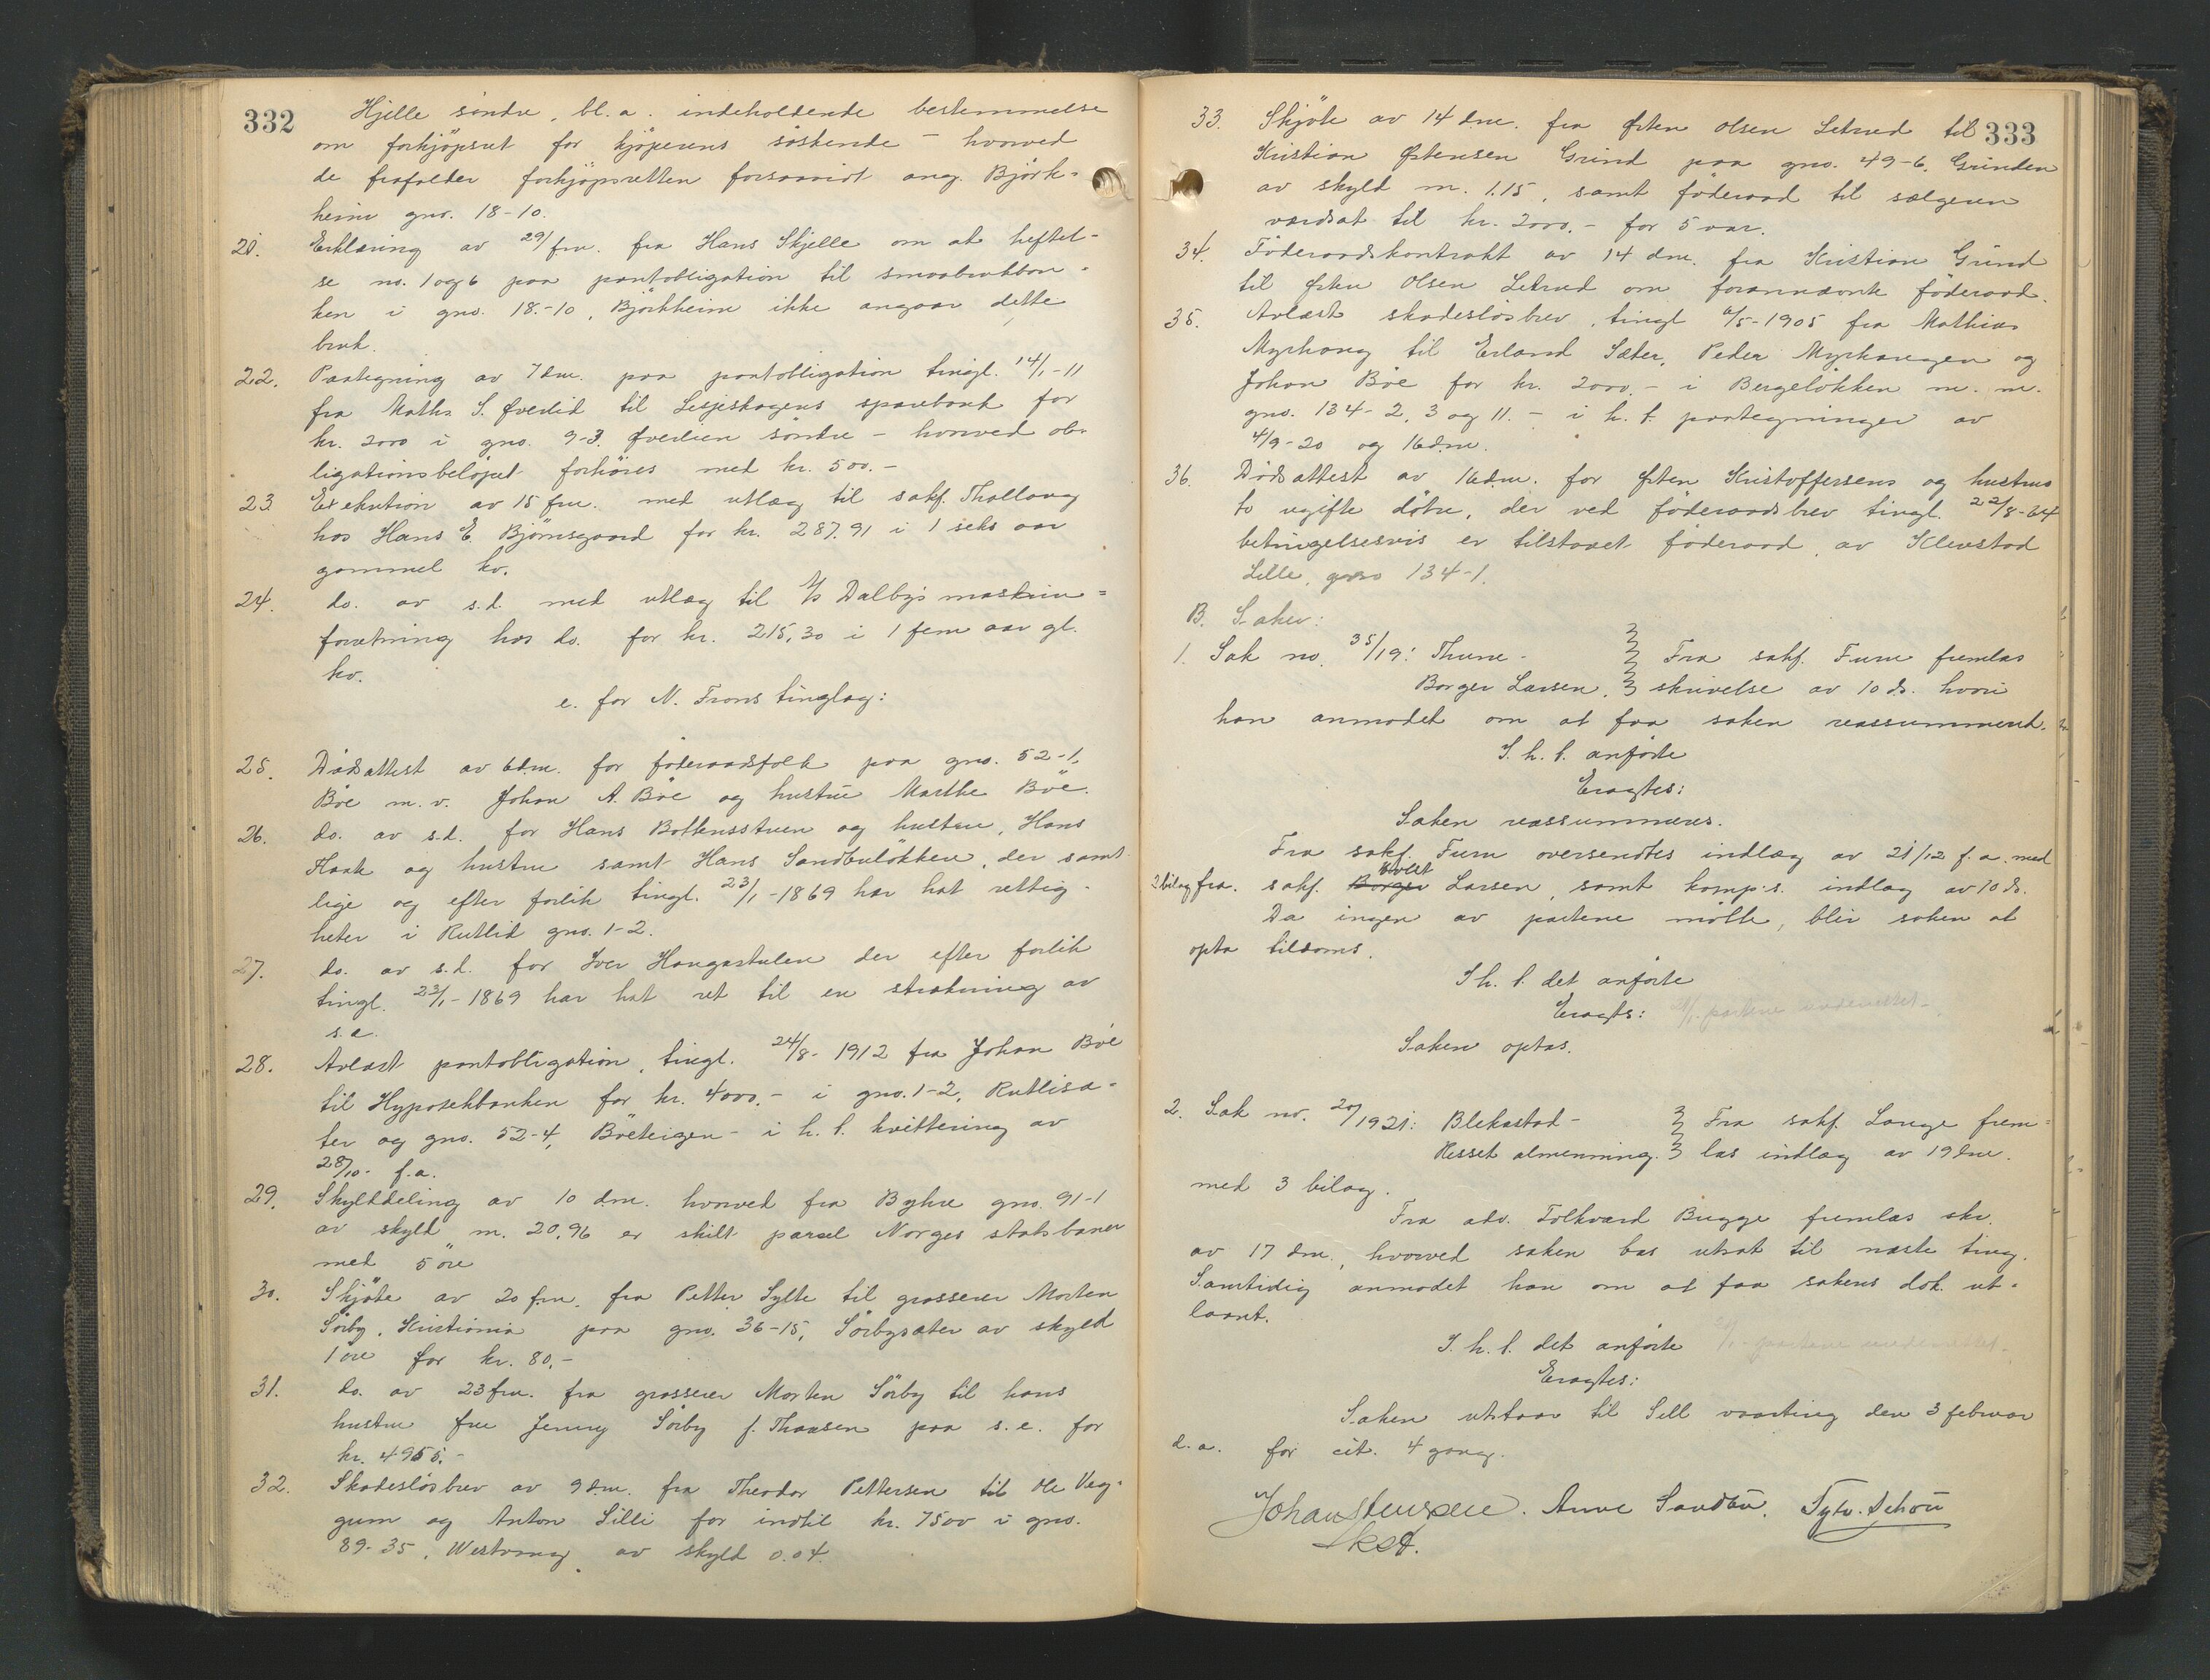 332
Hjelle söndre, bl.a. indeholdende bestemmelse
om forkjöpsret for kjöperens söskende - hvorved
de frafalder forkjöpsretten forsaavidt ang. Björk-
heim gno. 18-10.
21. Erklæring av 29/ frm. fra Hans Skjelle om at heftel-
se no. 1 og 6 paa pantobligation til smaabrukban-
ken i gno. 18.-10, Björkheim ikke angaar dette
bruk.
22. Paategning av 7 dm. paa pantobligation tingl. 14/1-11
fra Maths S. Øverlid til Lesjeskogens sparebank for
kr. 2000 i gno. 9-3. Øverlien söndre - hvorved ob-
ligationsbelöpet forhöies med kr. 500.-
23 Exekution av 15 frm. med utlæg til sakf. Thallaug
hos Hans E. Björnsgaard for kr. 287.91 i 1 seks aar
gammel ko.
24. do. av s.d. med utlæg til A/s Dalbys maskin=
forretning hos do. for kr. 215,30 i 1 fem aar gl.
ko.
e. for N. Frons tinglag:
25. Dödsattest av 6 dm. for föderaadsfolk paa gno. 52-1,
Böe m.v. Johan A. Böe og hustru Marthe Böe.
26. do. av s.d. for Hans Bottensstuen og hustru, Hans
Haak og hustru samt Hans Sandbulökken, der samt
lige og efter forlik tingl. 23/1-1869 har hat rettig-
heter i Rutlid gno. 1-2.
27. do. av s.d. for Iver Haugastulen der efter forlik
tingl. 23/1-1869 har hat ret til en strækning av
s.e.
28. Avlæst pantobligation, tingl. 24/8-1912 fra Johan Böe
til Hypotekbanken for kr. 4000.- i gno. 1-2, Rutlisæ-
ter og gno. 52-4, Böeteigen - i h. t. kvittering av
28/10- f.a.
29. Skylddeling av 10 dm. hvorved fra Byhre gno. 91-1
av skyld m. 20,96 er skilt parsel Norges statsbaner
med 5 öre
30. Skjöte av 20 frm. fra Petter Sylte til grosserer Morten
Sörby, Kristiania paa gno. 36-15, Sörbysæter av skyld
1 öre for kr. 80,-
31. do. av 23 frm. fra grosserer Morten Sörby til hans
hustru fru Jenny Sörby f. Thaasen paa s.e. for
kr. 4955.-
32. Skadeslösbrev av 9 dm. fra Theodor Pettersen til Ole Veg-
gum og Anton Lilli for indtil kr. 7500 i gno.
89-35, Westvang av skyld 0.04.
333
33. Skjöte av 14 dm. fra Østen Olsen Letrud til
Kristian Østensen Grind paa gno. 49-6, Grinden
av skyld m. 1.15, samt föderaad til sælgeren
værdsat til kr. 2000.- for 5 aar.
34. Föderaadskontrakt av 14 dm. fra Kristian Grind
til Østen Olsen Letrud om forannævnte föderaad.
35. Avlæst skadeslösbrev, tingl 6/5-1905 fra Mathias
Myrhaug til Erland Sæter, Peder Myrhaugen og
Johan Böe for kr. 2000.- i Bergelökken m. m.
gno. 134-2, 3 og 11. - i h. t. paategninger av
4/9-20 og 16 dm.
36. Dödsattest av 16 dm. for Østen Kristoffersens og hustrus
to ugifte dötre, der ved föderaadsbrev tingl. 22/8-64
betingelsesvis er tilstaaet föderaad av Klevstad
Lille, gno 134-1.
B. Saker:
1. Sak no. 35/19: Thune -
Borger Larsen.
Fra sakf. Furu fremlas
skrivelse av 10 ds. hvori
han anmodet om at faa saken reassummeret.
I. h. t. anförte
Eragtes:
Saken reassummeres.
Fra sakf. Furu oversendtes indlæg av 21/12 f.a. med
2 bilag fra. sakf. Borger Larsen, samt komp.s. indlæg av 10 ds.
Da ingen av partene mötte, blir saken at
opta tildoms.
I h. t. det anförte
Eragts: partene underrettet.
Saken optas.
2. Sak no. 20/1921: Blekastad -
Resset almenning.
Fra sakf. Lange frem=
las indlæg av 19 dm.
med 3 bilag.
Fra adv. Folkvard Bugge fremlas skr.
av 17 dm., hvorved saken bes utsat til næste ting.
Samtidig anmodet han om at faa sakens dok. ut-
laant.
I. h. t. det anförte partene underrettet.
Eragtes:
Saken utstaar til Sell vaarting den 3 februar
d.a. for cit. 4 gang.
Anne Sandbu.